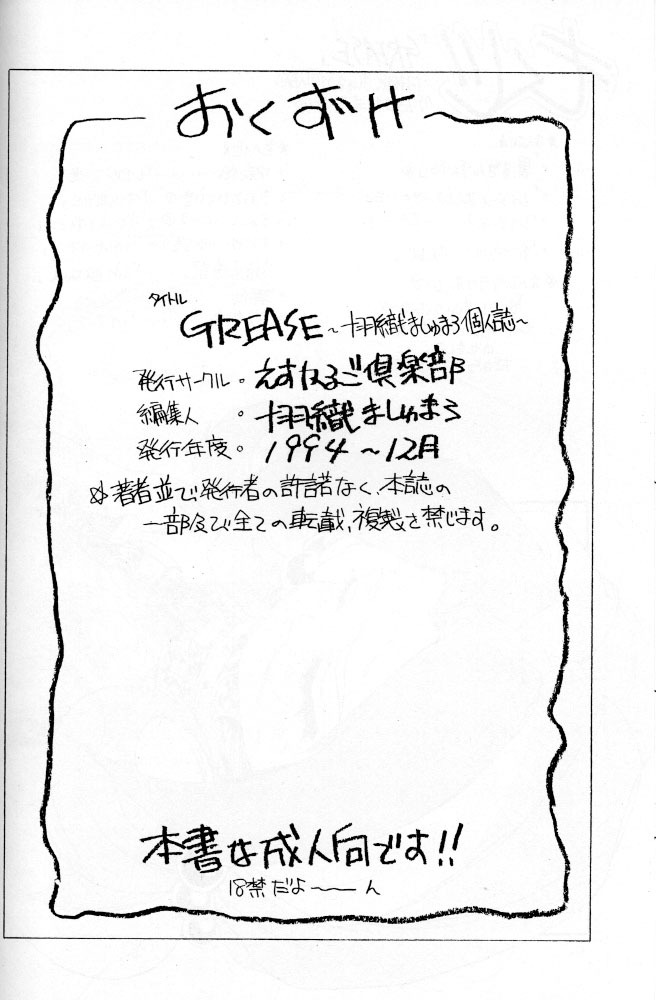 おくずけ
タイトル
GREASE ～十羽織ましゅまろ個人誌～
発行サークル。えすけるご倶楽部
編集人。十羽織ましゅまろ
発行年度。1994～12月
著者並で発行者の許諾なく、本誌の
一部及び全ての転載、複製を禁じます。
本書は成人向です!!
18禁だよ～～ん